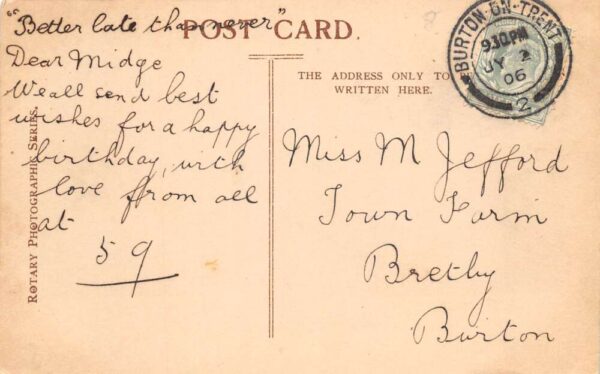 "Better late than never"
POST CARD.
Dear Midge
We all send best
wishes for a happy
birthday, with
love from all
at
59
ROTARY PHOTOGRAPHIC SERIES.
THE ADDRESS ONLY TO
WRITTEN HERE.
BURTON-ON-TRENT
9.30PM
JY 2
06
2
Miss M Jefford
Town Farm
Bretby
Burton